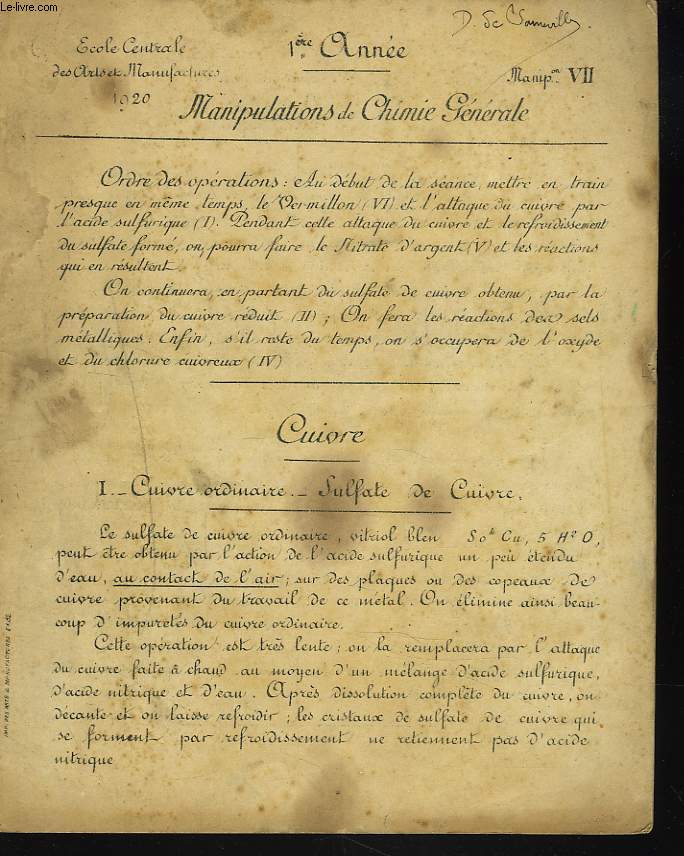 Le-livre.com
D. de
Ecole Centrale
des Arts et Manufactures
1920
1ère Année
Manip.on VII
Manipulations de Chimie Générale
Ordre des opérations : Au début de la séance, mettre en train
presque en même temps, le Vermillon (VI) et l'attaque du cuivre par
l'acide sulfurique (I). Pendant cette attaque du cuivre et le refroidissement
du sulfate formé, on pourra faire le Nitrate d'argent (V) et les réactions
qui en résultent.
On continuera, en partant du sulfate de cuivre obtenu, par la
préparation du cuivre réduit (II) ; On fera les réactions des sels
métalliques. Enfin, s'il reste du temps, on s'occupera de l'oxyde
et du chlorure cuivreux (IV)
Cuivre
I._ Cuivre ordinaire._ Sulfate de Cuivre.
Le sulfate de cuivre ordinaire, vitriol bleu So⁴ Cu, 5 H² O,
peut être obtenu par l'action de l'acide sulfurique un peu étendu
d'eau, au contact de l'air ; sur des plaques ou des copeaux de
cuivre provenant du travail de ce métal. On élimine ainsi beau-
coup d'impuretés du cuivre ordinaire.
Cette opération est très lente ; on la remplacera par l'attaque
du cuivre faite à chaud au moyen d'un mélange d'acide sulfurique,
d'acide nitrique et d'eau. Après dissolution complète du cuivre, on
décante et on laisse refroidir ; les cristaux de sulfate de cuivre qui
se forment par refroidissement ne retiennent pas d'acide
nitrique